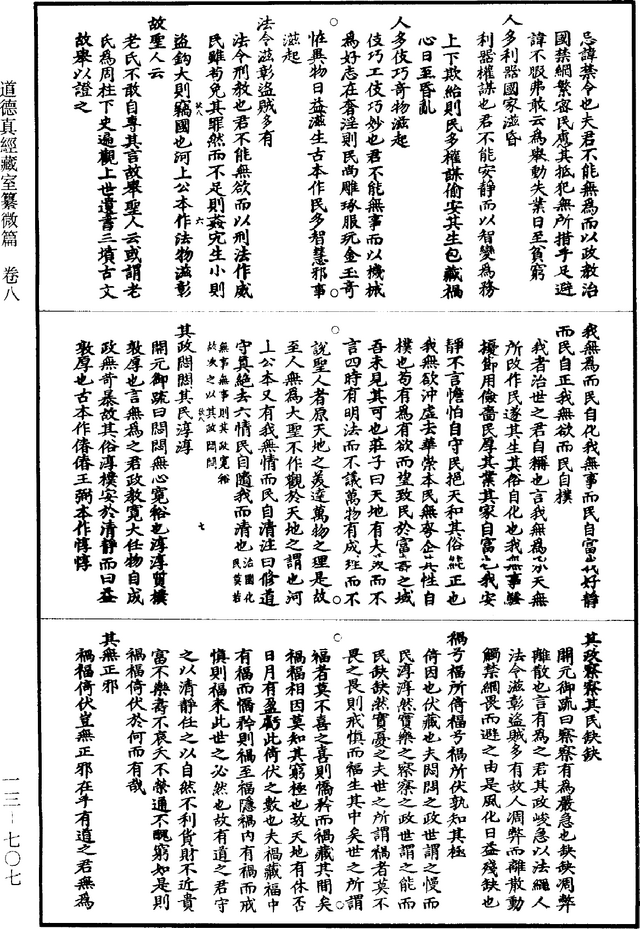 道德真經藏室纂微篇 卷八
忌諱禁令也夫君不能無為而以政教治
國禁網繁密民慮其抵犯無所措手足避
諱不暇弗敢云為舉動失業日至貧窮
人多利器國家滋昏
利器權謀也君不能安靜而以智變為務
上下欺紿則民多權謀偷安其生包藏禍
心日至昏亂
人多伎巧奇物滋起
伎巧工伎巧妙也君不能無事而以機械
為好志在奢淫則民尚雕琢服玩金玉奇
怪異物日益滋生古本作民多智慧邪事
滋起
法令滋彰盜賊多有
法令刑教也君不能無欲而以刑法作威
民雖苟免其罪然而不足則姦宄生小則
盜鈎大則竊國也河上公本作法物滋彰
故聖人云
老氏不敢自專其言故舉聖人云或謂老
氏為周柱下史遍觀上世遺書三墳古文
故舉以證之
我無為而民自化我無事而民自富我好靜
而民自正我無欲而民自樸
我者治世之君自稱也言我無為不夭無
所改作民遂其生其俗自化也我無事騷
擾節用儉嗇民厚其業其家自富也我安
靜不言憺怕自守民挹天和其俗能正也
我無欲沖虛去華崇本民無夸企其性自
樸也苟有為有欲而望致民於富壽之域
吾未見其可也莊子曰天地有大美而不
言四時有明法而不議萬物有成理而不
說聖人者原天地之美達萬物之理是故
至人無為大聖不作觀於天地之謂也河
上公本又有我無情而民自清注曰修道
守真絕去六情民自隨我而清也
其政悶悶其民淳淳
開元御疏曰悶悶無心寬裕也淳淳質樸
敦厚也言無為之君政教寬大任物自成
政無苛暴故其俗淳樸安於清靜而日益
敦厚也古本作偆偆王弼本作惇惇
其政察察其民缺缺
開元御疏曰察察有為嚴急也缺缺凋弊
離散也言有為之君其政峻急以法繩人
法令滋彰盜賊多有故人凋弊而離散動
觸禁網畏而避之由是風化日益殘缺也
禍兮福所倚福兮禍所伏孰知其極
倚因也伏藏也夫悶悶之政世謂之慢而
民淳淳然實樂之察察之政世謂之能而
民缺缺然實憂之夫世之所謂禍者莫不
畏之畏則戒慎而福生其中矣世之所謂
福者莫不喜之喜則憍矜而禍藏其間矣
禍福相因莫知其窮極也故天地有休否
日月有盈虧此倚伏之數也夫禍藏福中
有福而憍矜則禍至福隱禍內有禍而戒
慎則福來此世之必然也故有道之君守
之以清靜任之以自然不利貨財不近貴
富不樂壽不哀夭不榮通不醜窮如是則
禍福倚伏於何而有哉
其無正邪
禍福倚伏豈無正邪在乎有道之君無為
一三－七〇七